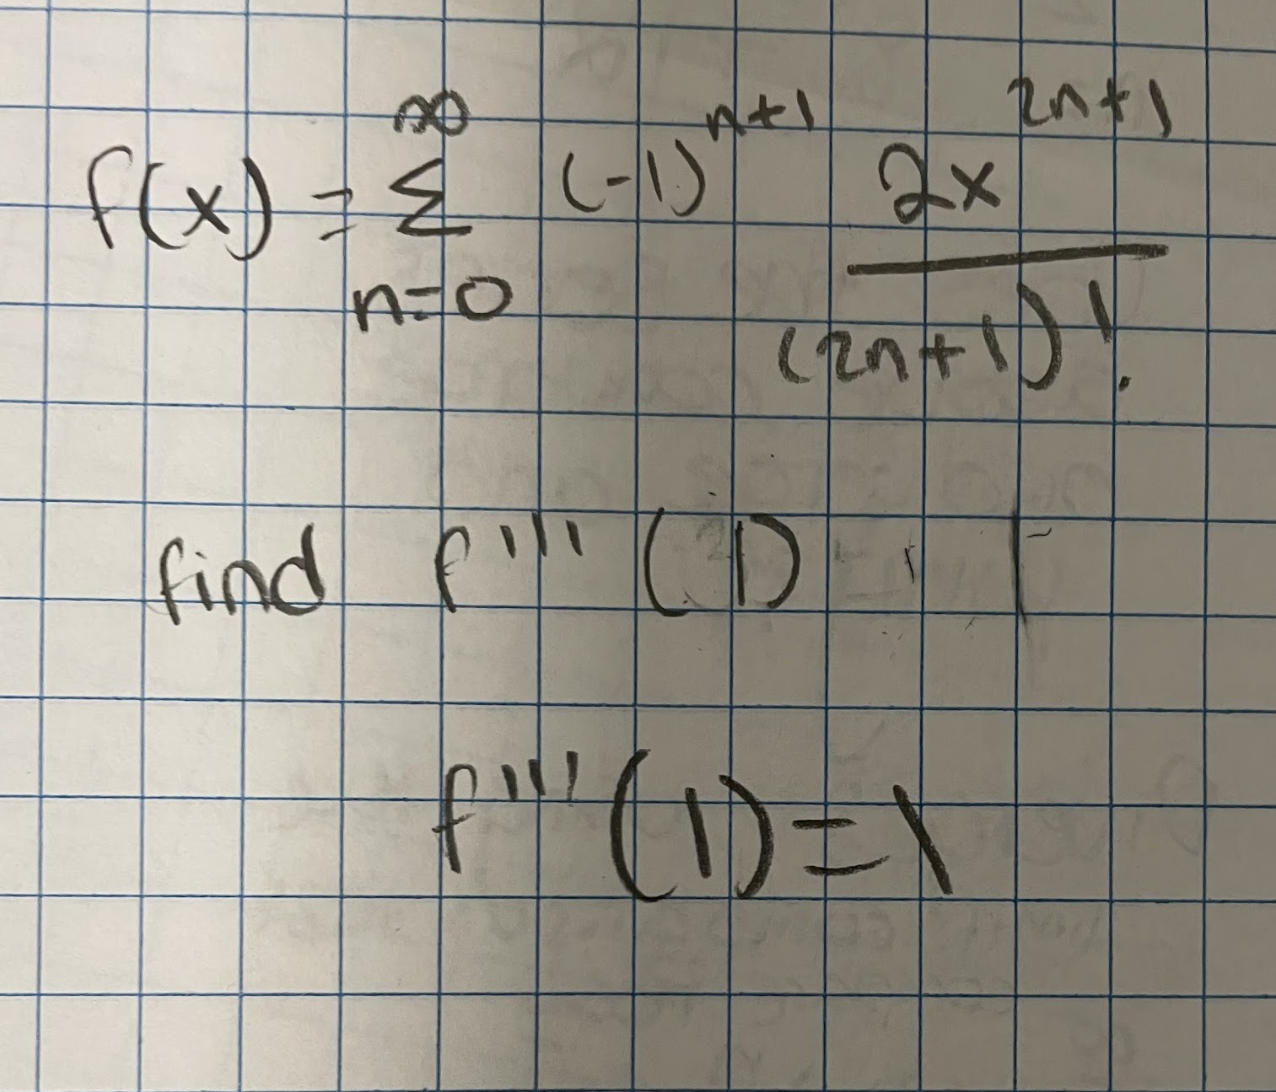 f(x) = ∞Σn=0 (-1)^(n+1) 2x^(2n+1) / (2n+1)!
find f'''(1)
f'''(1) = 1